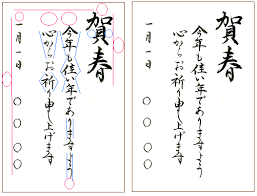 賀春
今年も佳い年でありますよう
心からお祈り申し上げます
一月一日
○○○○
賀春
今年も佳い年でありますよう
心からお祈り申し上げます
一月一日
○○○○